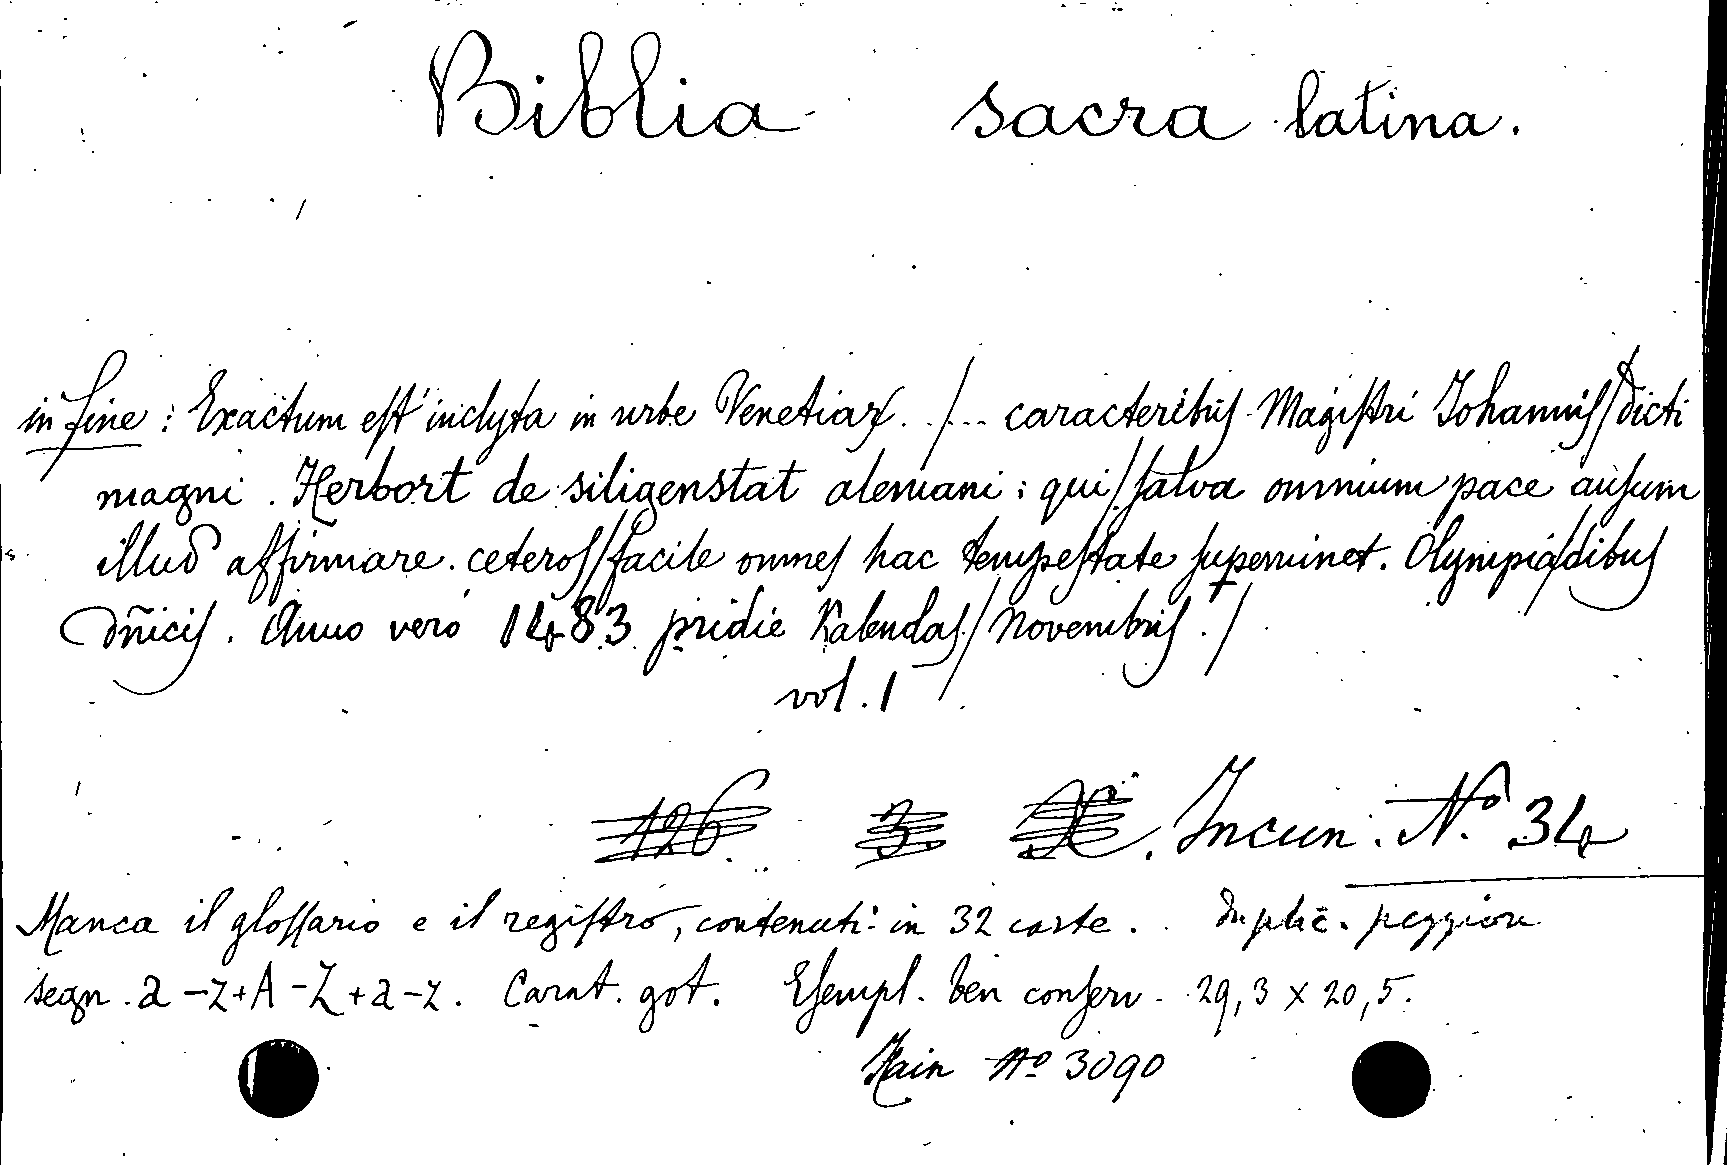 Biblia sacra latina.
in fine: Exactum est inclyta in urbe Venetiaꝝ. /... caracteribus Magistri Johannis/dicti
magni. Herbort de siligenstat alemani: qui/salva omnium pace ausum
illud affirmare. ceteros/facile omnes hac tempestate supeminet. Olympia/dibus
dñicis. Anno vero 1483 pridie Kalendas/Novembris./
vol. 1
126 3 Incun. Nº 34
Manca il glossario e il registro, contenuti in 32 carte. duplic. peggiore
segn. a-z+A-Z+a-z. Carat. got. Esempl. ben conserv. 29,3 x 20,5.
Hain Nº 3090